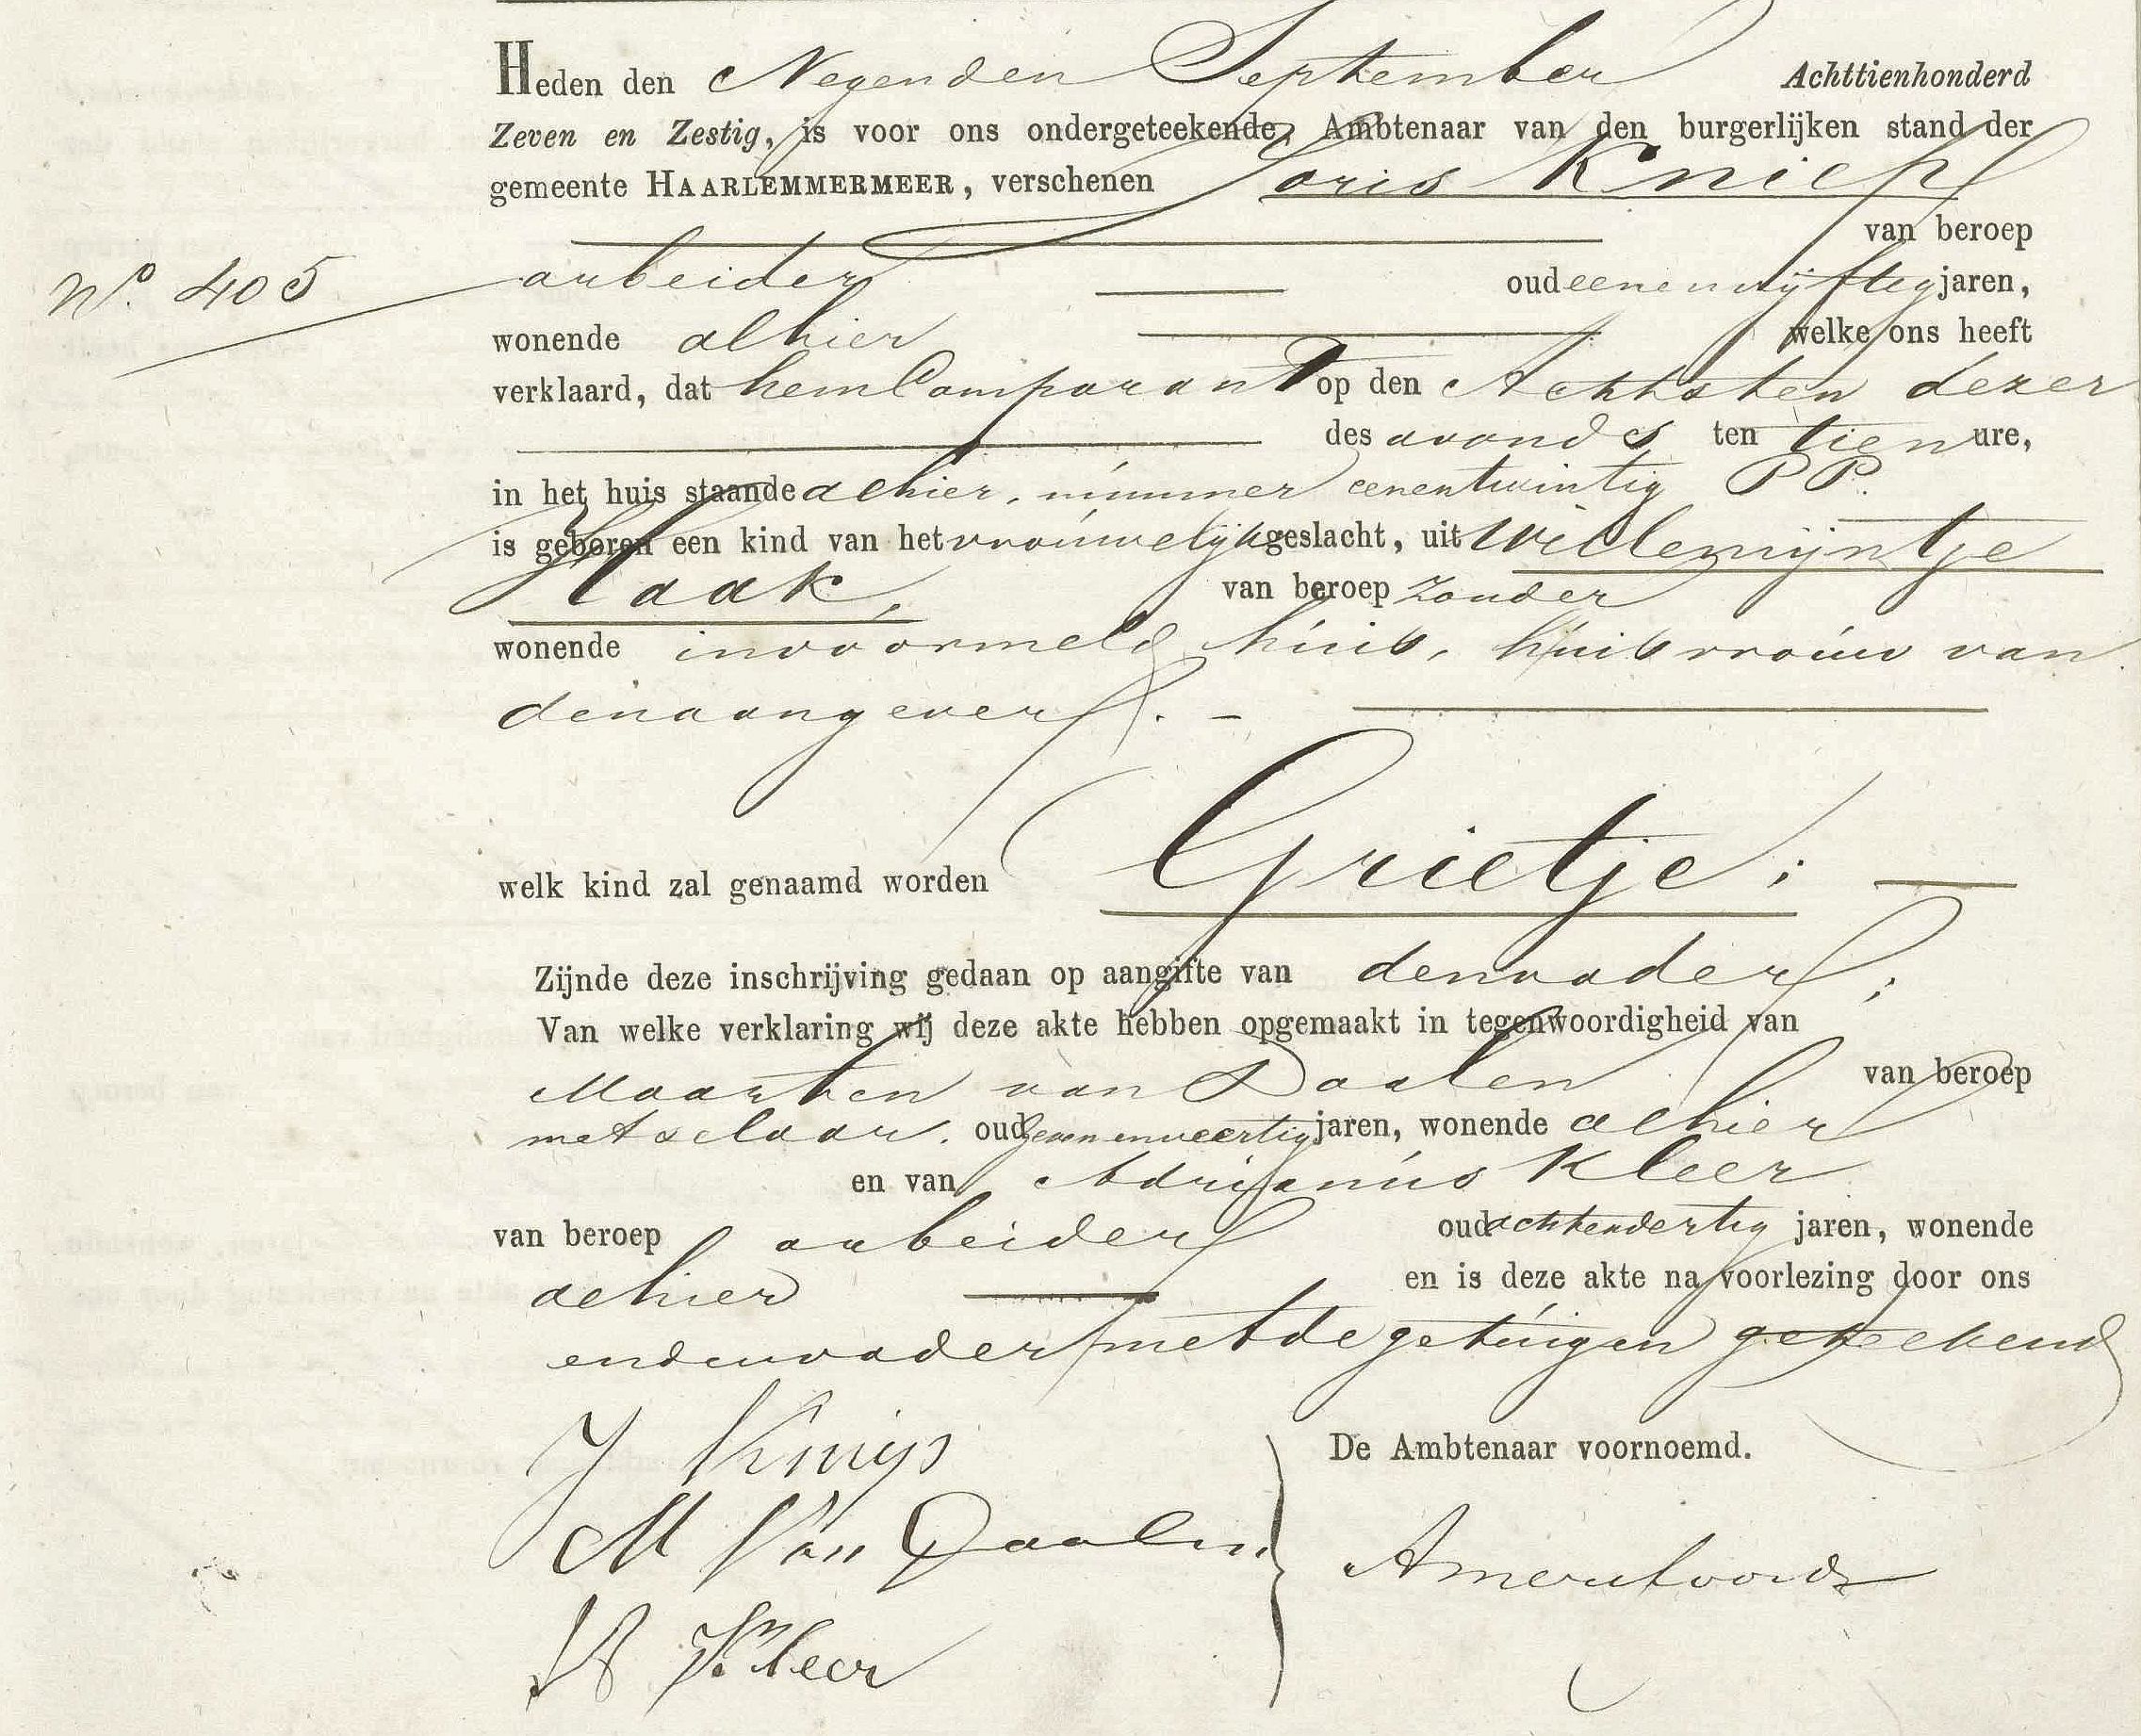 Heden den Negenden September Achttienhonderd
Zeven en Zestig, is voor ons ondergeteekende, Ambtenaar van den burgerlijken stand der
gemeente HAARLEMMERMEER, verschenen Joris Kniep
van beroep
No. 405 arbeider oud eenenvijftig jaren,
wonende alhier welke ons heeft
verklaard, dat hem Comparant op den Achtsten dezer
des avonds ten tien ure,
in het huis staande alhier, nummer eenentwintig PP.
is geboren een kind van het vrouwelijk geslacht, uit Willemijntje
Haak, van beroep zonder
wonende in voormeld huis, huisvrouw van
den aangever. -
welk kind zal genaamd worden Grietje;
Zijnde deze inschrijving gedaan op aangifte van den vader;
Van welke verklaring wij deze akte hebben opgemaakt in tegenwoordigheid van
Maarten van Daalen van beroep
metselaar. oud zevenenveertig jaren, wonende alhier
en van Adrianus Kleer
van beroep arbeider oud achtendertig jaren, wonende
alhier en is deze akte na voorlezing door ons
en den vader met de getuigen geteekend
De Ambtenaar voornoemd.
J Knijp
M Van Daalen
Amersfoordt
A Kleer